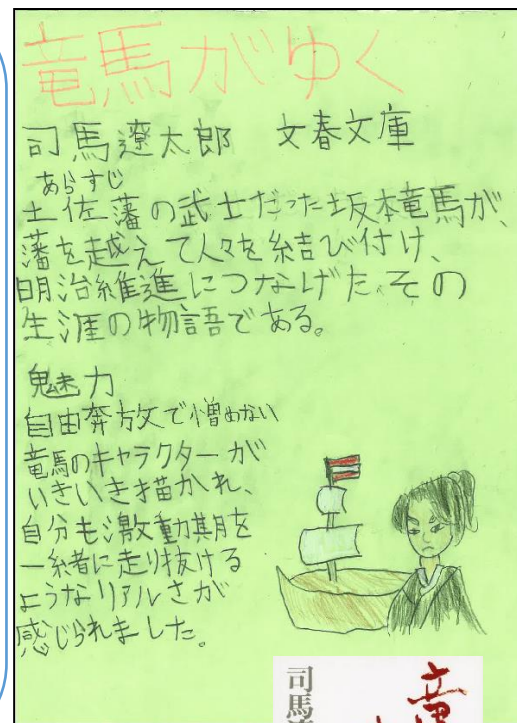 竜馬がゆく
司馬遼太郎 文春文庫
あらすじ
土佐藩の武士だった坂本竜馬が、
藩を越えて人々を結び付け、
明治維進につなげた、その
生涯の物語である。
魅力
自由奔放で憎めない
竜馬のキャラクターが
いきいき描かれ、
自分も激動期を
一緒に走り抜ける
ようなリアルさが
感じられました。
司馬
竜